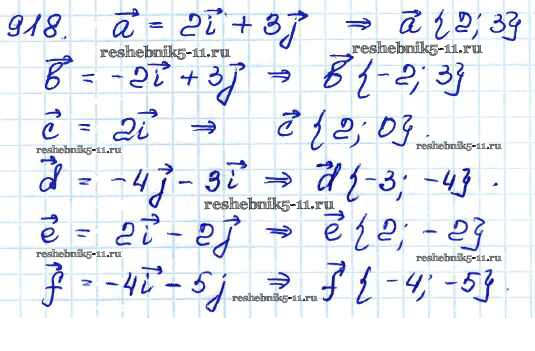 918. a⃗ = 2i⃗ + 3j⃗ ⇒ a⃗ {2; 3}
reshebnik5-11.ru reshebnik5-11.ru
b⃗ = -2i⃗ + 3j⃗ ⇒ b⃗ {-2; 3}
c⃗ = 2i⃗ ⇒ c⃗ {2; 0}.
reshebnik5-11.ru reshebnik5-11.ru
d⃗ = -4j⃗ - 3i⃗ ⇒ d⃗ {-3; -4}.
reshebnik5-11.ru
e⃗ = 2i⃗ - 2j⃗ ⇒ e⃗ {2; -2}
reshebnik5-11.ru reshebnik5-11.ru
f⃗ = -4i⃗ - 5j ⇒ f⃗ {-4; -5}.
reshebnik5-11.ru